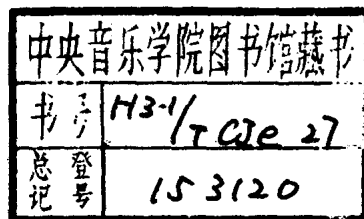 中央音乐学院图书馆藏书
书号 H3-1/T CJe 27
总登记号 153120